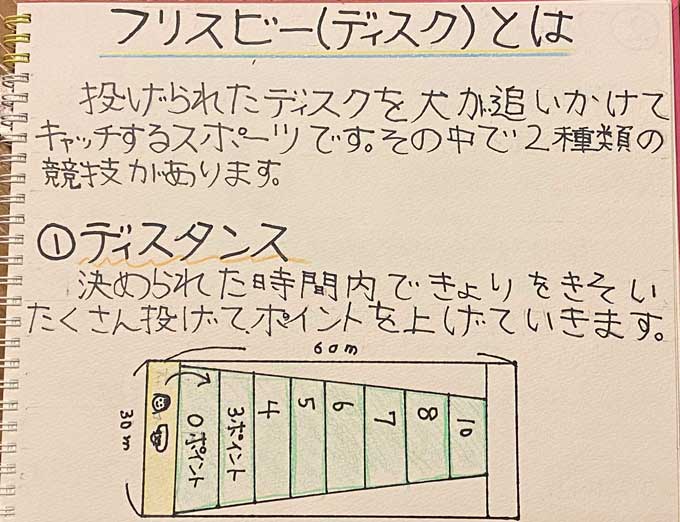 フリスビー(ディスク)とは
投げられたディスクを犬が追いかけて
キャッチするスポーツです。その中で2種類の
競技があります。
①ディスタンス
決められた時間内できょりをきそい
たくさん投げて、ポイントを上げていきます。
60m
30m
0ポイント
3ポイント
4
5
6
7
8
10